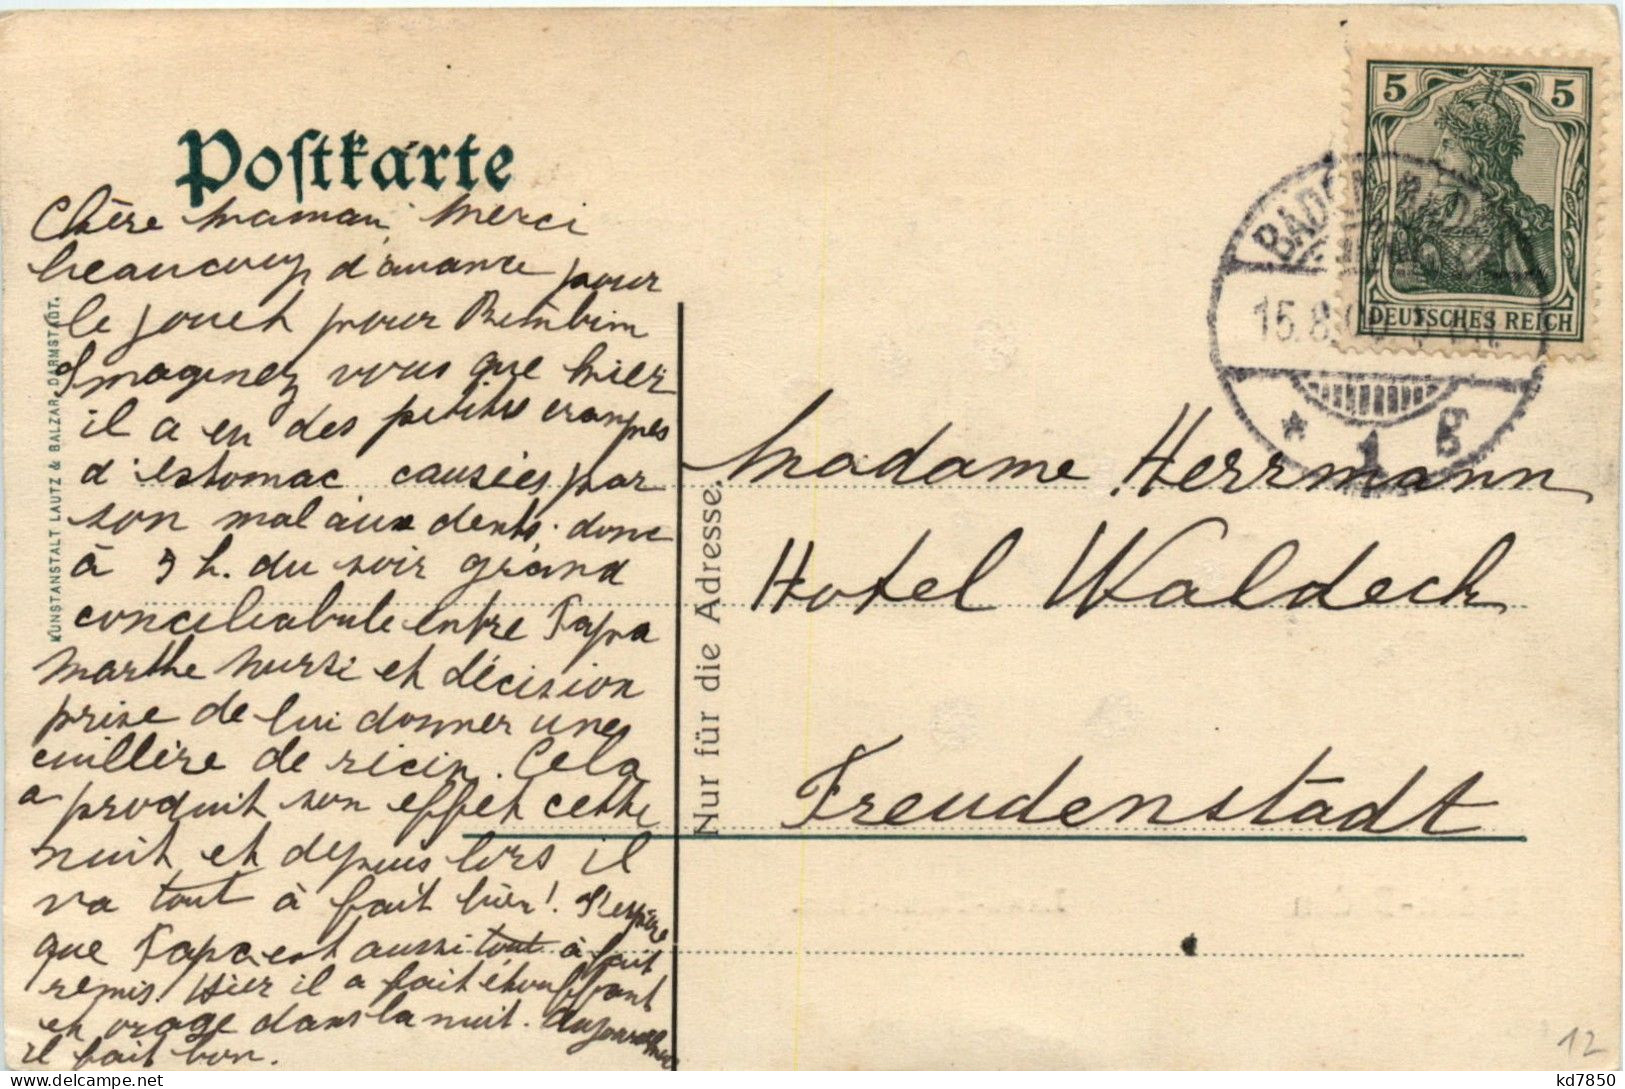 Postkarte
Chère maman, Merci
beaucoup d'avance pour
le jouet pour Bimbim
Imaginez vous que hier
il a eu des petites crampes
d'estomac causées par
son mal aux dents. donc
à 9 h. du soir grand
conciliabule entre Papa
Marthe nursi et décision
prise de lui donner une
cuillère de ricin. Cela
a produit son effet cette
nuit et depuis lors il
va tout à fait bien! J'espère
que Papa est aussi tout à fait
remis. Hier il a fait étouffant
et orage dans la nuit. Aujourd'hui
il fait bon.
KUNSTANSTALT LAUTZ & BALZAR, DARMSTADT.
Nur für die Adresse.
5 5
DEUTSCHES REICH
BADEN-BADEN
15.8.
* 1 g
Madame Herrmann
Hotel Waldeck
Freudenstadt
12
kd7850